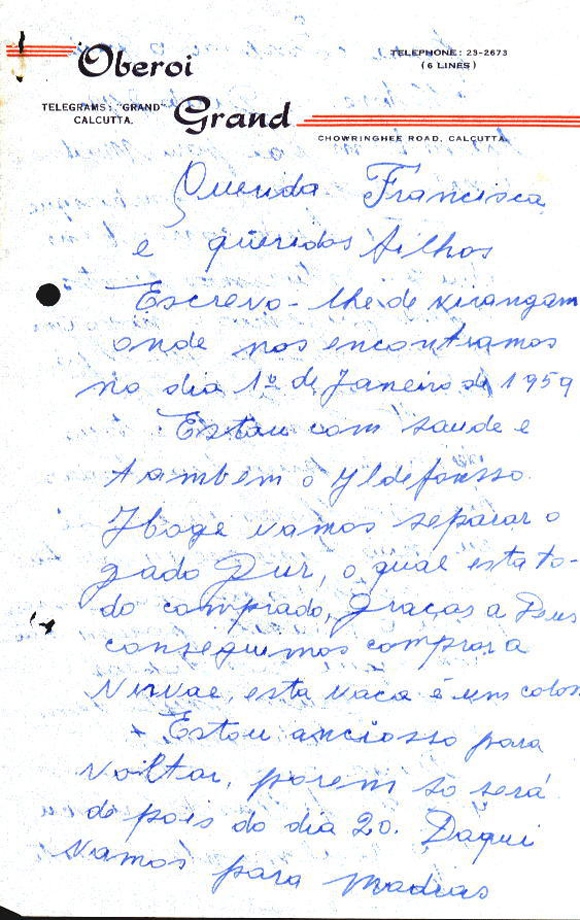 Oberoi
Grand
TELEPHONE: 23-2673
(6 LINES)
TELEGRAMS: "GRAND"
CALCUTTA.
CHOWRINGHEE ROAD, CALCUTTA
Querida Francisca
e queridos filhos
Escrevo-lhe de
onde nos encontramos
no dia 1º de Janeiro de 1959
Estou com saude e
tambem o Yldefonsso.
Hoge vamos separar o
gado Pur, o qual esta to-
do comprado, graças a Deus
conseguimos comprar a
esta vaca é um colos
Estou anciosso para
voltar, porem so será
de pois do dia 20. Daqui
vamos para Madras